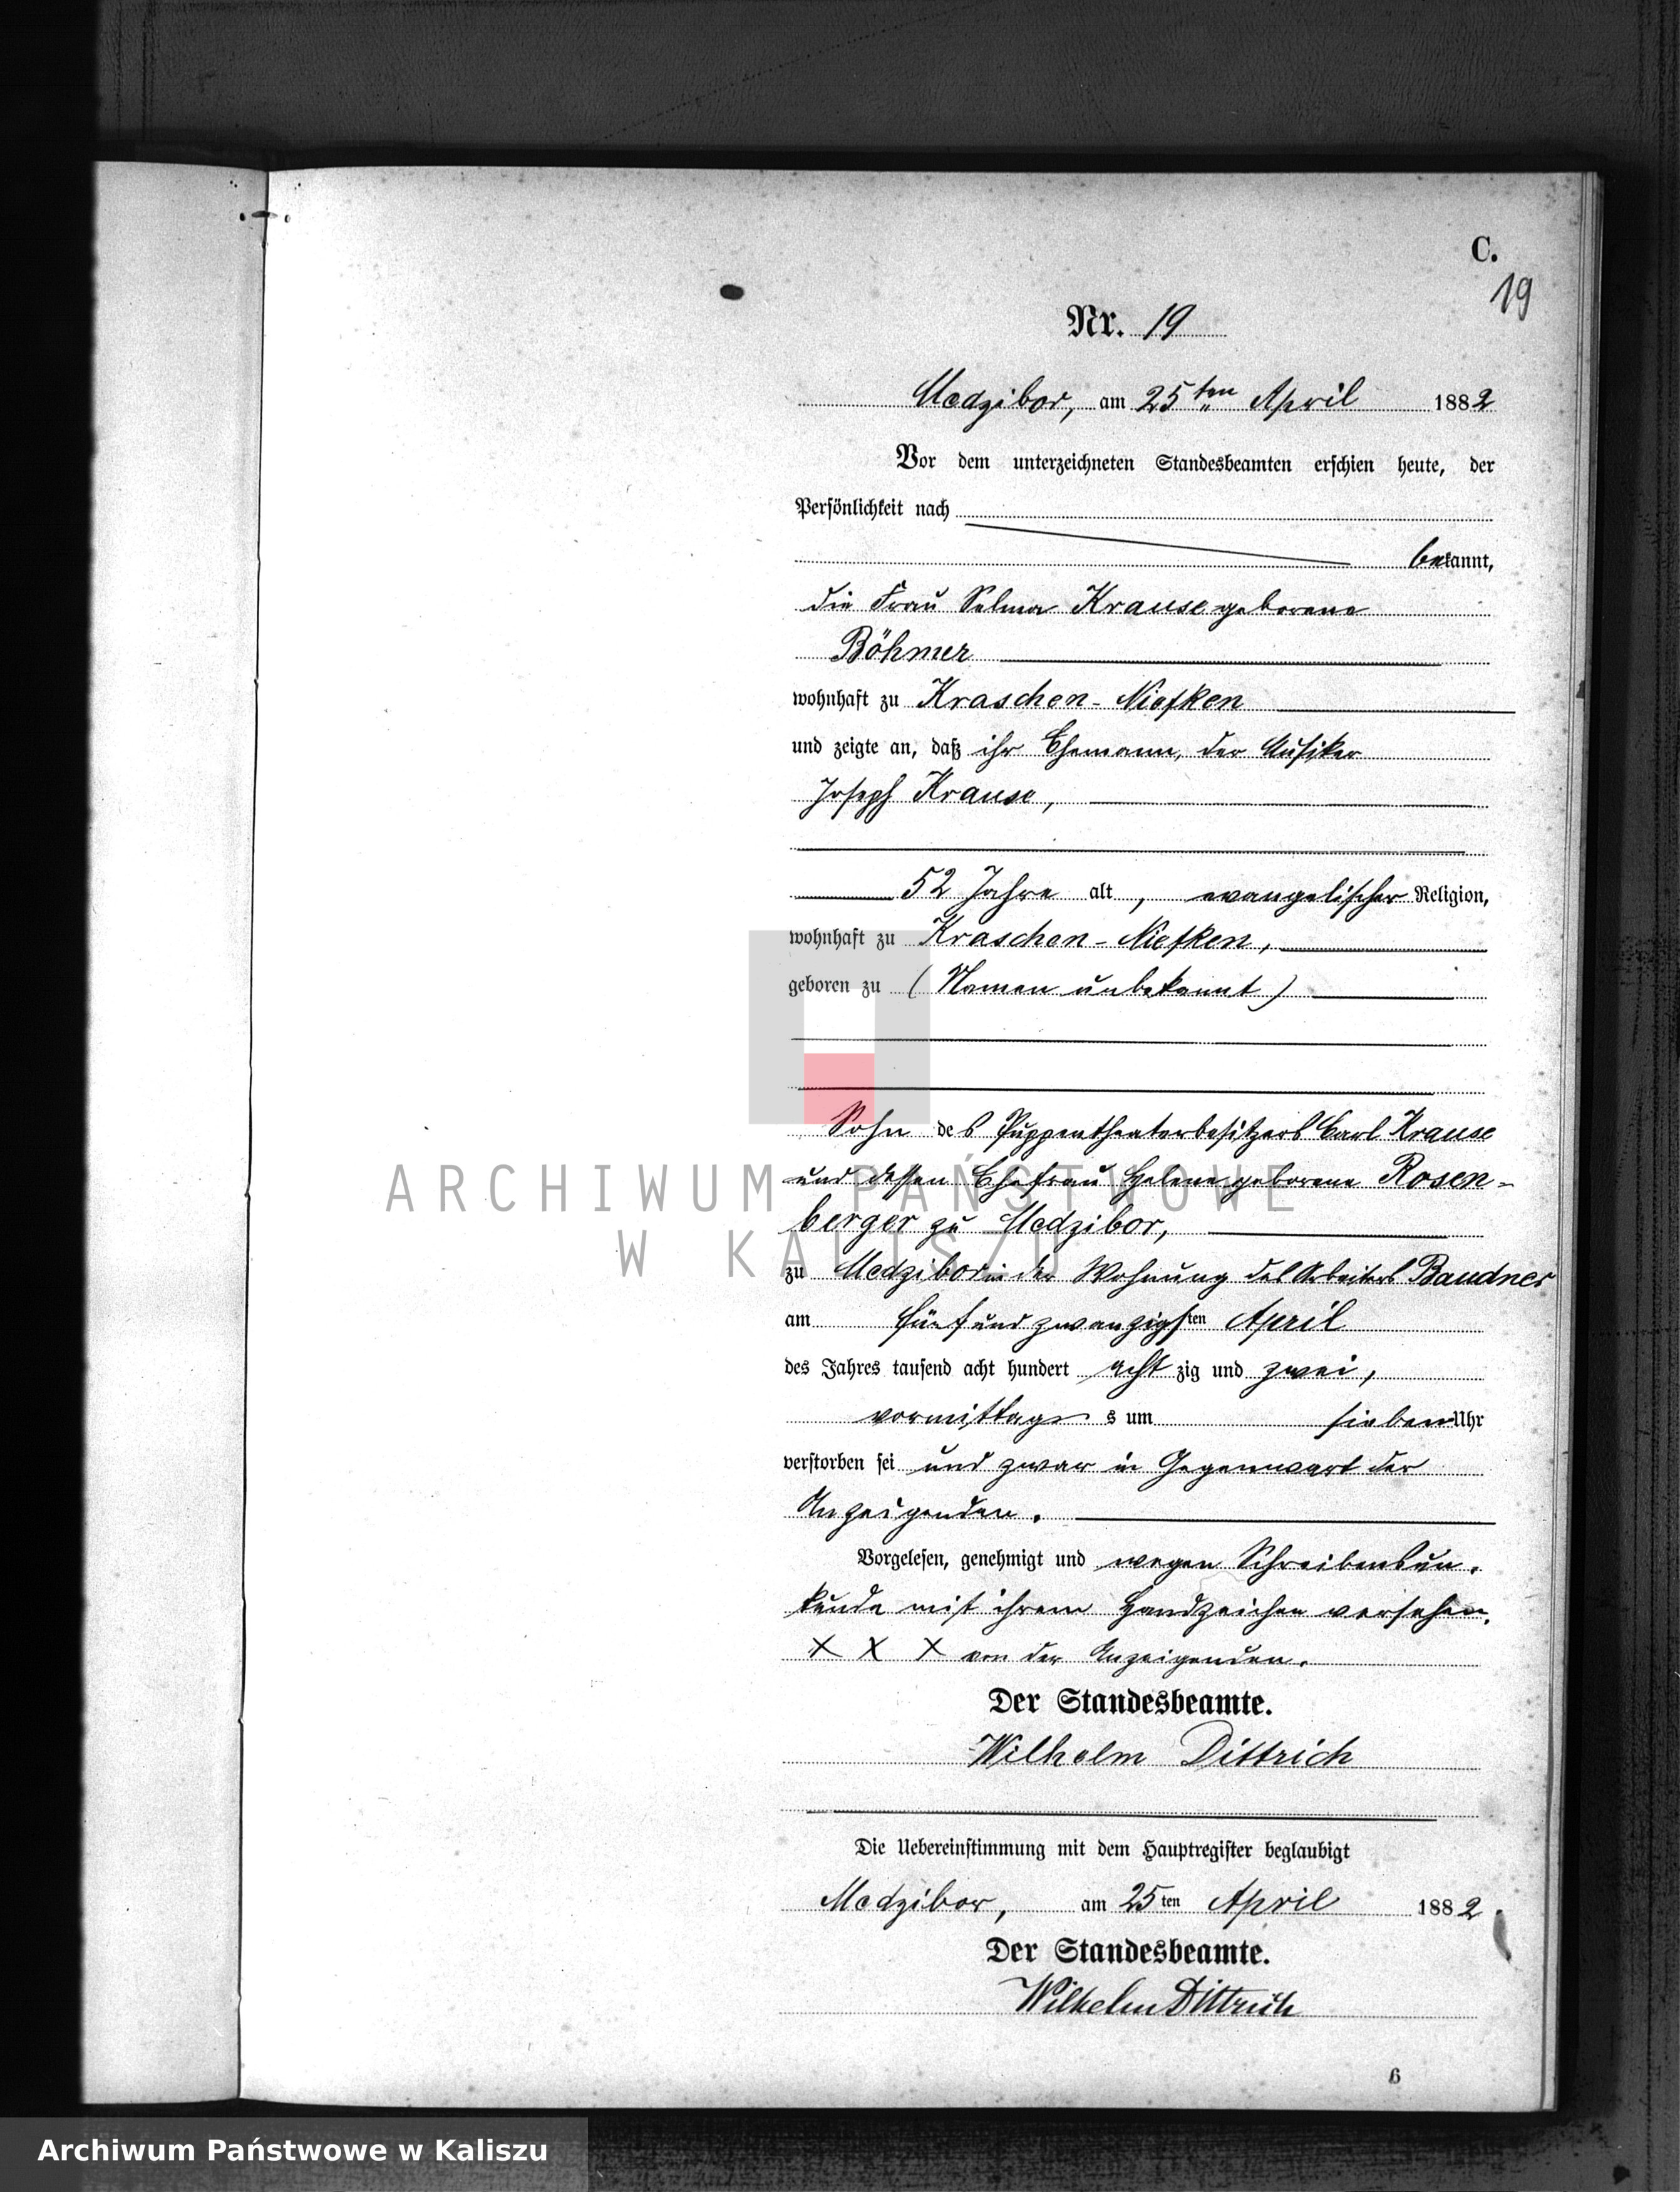 C.
19
Nr. 19
Medzibor, am 25ten April 1882
Vor dem unterzeichneten Standesbeamten erschien heute, der
Persönlichkeit nach
bekannt,
die Frau Selma Krause geborene
Böhmer
wohnhaft zu Kraschen-Niefken
und zeigte an, daß ihr Ehemann, der Musiker
Joseph Krause,
52 Jahre alt, evangelischer Religion,
wohnhaft zu Kraschen-Niefken,
geboren zu (Namen unbekannt)
Sohn des Puppentheaterbesitzers Carl Krause
und dessen Ehefrau Helene geborene Rosen-
berger zu Medzibor,
zu Medzibor in der Wohnung des Arbeiters Baudner
am fünf und zwanzigsten April
des Jahres tausend acht hundert achtzig und zwei,
vormittags um sieben Uhr
verstorben sei und zwar in Gegenwart der
Anzeigenden.
Vorgelesen, genehmigt und wegen Schreibensun-
kunde mit ihrem Handzeichen versehen.
X X X von der Anzeigenden.
Der Standesbeamte.
Wilhelm Dittrich
Die Uebereinstimmung mit dem Hauptregister beglaubigt
Medzibor, am 25ten April 1882
Der Standesbeamte.
Wilhelm Dittrich
6
ARCHIWUM PAŃSTWOWE
W KALISZU
Archiwum Państwowe w Kaliszu